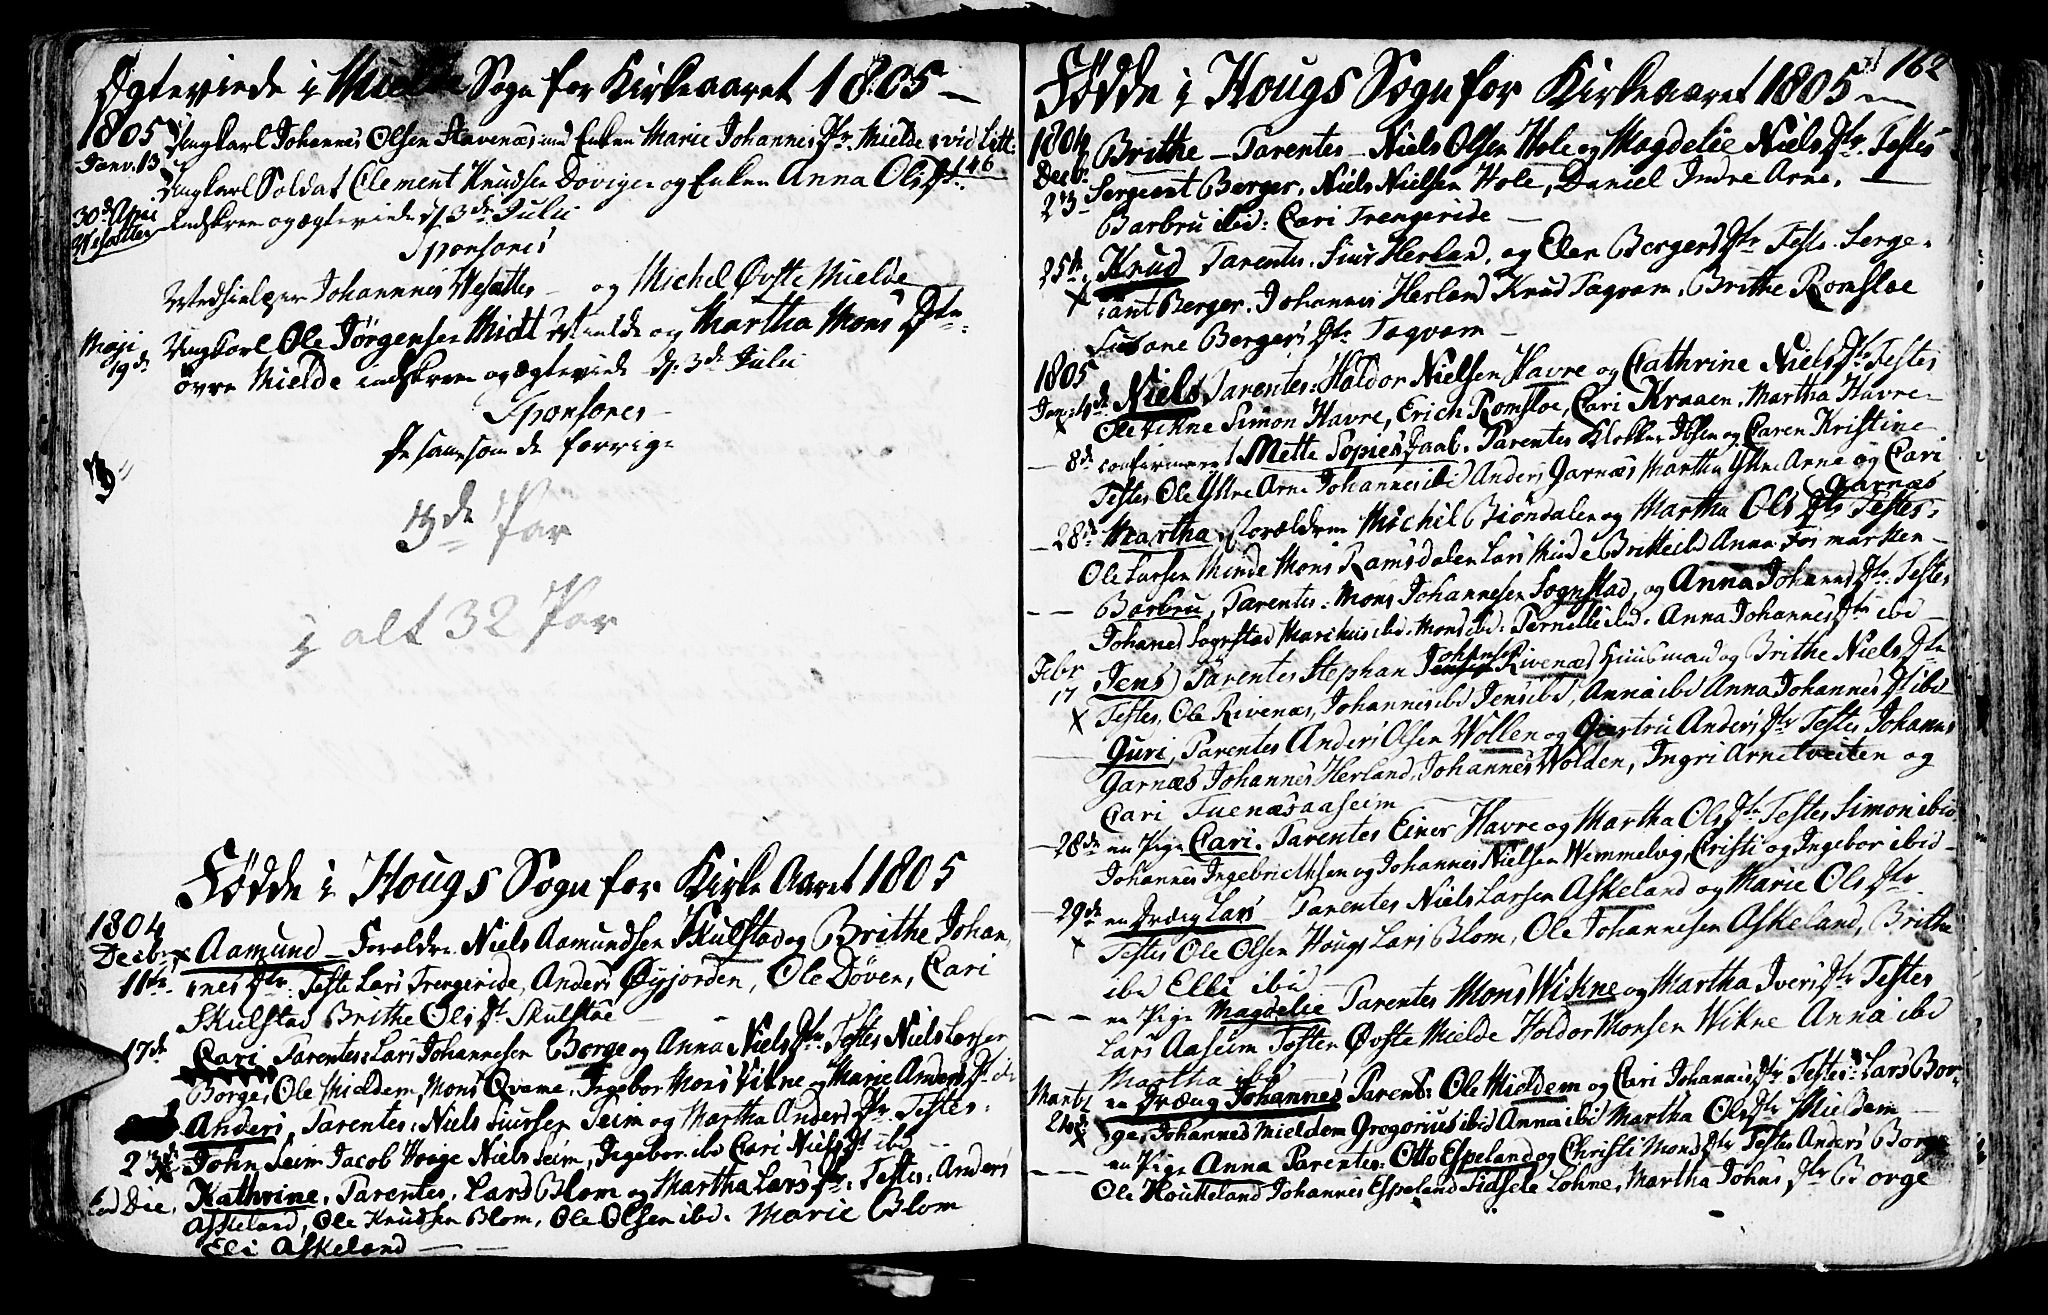 Øgteviede i Mielde Sogn for Kirkeaaret 1805 —
1805 Ungkarl Johannes Olsen Stavenæs med Enken Marie Johannis Dtr. Mielde vid Litt:
Janv. 13
146
Ungkarl Soldat Clement Knudsen Doviger og Enken Anna Ols Dtr.
30de Apri indskrevn og ægteviede d 3de Julii
Sponsores
Johannnes Vefattes — og Michel Øvste Mielde
Maji 19de Ungkarl Ole Jörgensen Midt Mielde og Martha Mons Dtr.
övre Mielde indskreven og ægteviede d. 3de Julii
Sponsores
de samme som de forrige
3
3de Par
i alt 32 Par
Födde i Hougs Sogn for Kirke Aaret 1805
1804
Decbr. Aamund — Forældre Niels Aamundsen Skulstad og Brithe Johan,
11te nes Dtr: Teste Lars Trengeride, Anders Øyjorden, Ole Döven, Cari
Skulstad Brithe Ols Dt Skulstad
17de Cari Parentes: Lars Johannesen Borge og Anna Niels Dtr Testes Niels Larsen
Borge, Ole Mieldem, Mons Qvame, Ingebor Mons Vikne og Marie Anders Dt ib
Anders, Parentes: Niels Siursen Seim og Martha Anders Dtr. Testes:
23de John Seim Jacob Houge Niels Seim, Ingebor ibd Cari Niels Dt ibd —
eod Die, Kathrine, Parentes, Lars Blom og Martha Lars Dtr. Testes: Anders
Askeland, Ole Knudsen Blom, Ole Olsen ibd. Marie Blom
Eli Askeland —
162
Födde i Hougs Sogn for Kirkeaaret 1805
1804 Brithe — Parentes — Niels Olsen Hole og Magdelie Niels Dtr. Testes
Decb. 23 Sergeant Berger, Niels Nielsen Hole, Daniel Indre Arne, —
Barbru ibid: Cari Trengeride —
25de Knud Parentes. Siur Herland, og Elen Bergers Dtr Testes. Serge-
ant Berger. Johannes Herland Knud Tagvam, Brithe Romsloe
Susane Bergers Dtr Tagvam —
1805
Janv 4de Niels Parentes: Haldor Nielsen Havre og Cathrine Niels Dtr Testes
Ole Vikne Simon Havre, Erich Romsloe, Cari Kraaen, Martha Havre —
— 8de confirmeret Mette Sopies Daab. Parentes Klokker Ibsen og Caren Kristine
Testes Ole Yttre Arne Johannes ibd Anders Garnæs Martha Yttre Arne og Cari
Garnæs
— 28de Martha, Forældre Michil Biöndalen og Martha Ols Dtr Testes,
Ole Larsen Minde Mons Ramsdalen Lars Minde Britte ibd Anna Formarken —
— — Barbru, Parentes: Mons Johannesen Sognstad, og Anna Johannes Dtr. Testes
Johanes Sognstad Marthus ibd. Mons ibd. Pernille ibd. Anna Johannes Dtr ibd
Febr 17 Jens Parentes Stephan Johanes Rivenæs Huusmand og Brithe Niels Dtr
Testes, Ole Rivenæs, Johannes ibd Jens ibd, Anna ibd Anna Johannes Dt ibd
Guri, Parentes Anders Olsen Wollen og Giertru Anders Dtr Testes Johannes
Garnæs Johannes Herland, Johannes Wolden, Ingri Arnetveiten og
Cari Tuenæsaaseim —
— 28de en Pige Cari. Parentes Einer Havre og Martha Ols Dtr Testes Simon ibid
Johannes Ingebricthsen og Johannes Nielsen Wemmelvg, Cristi og Ingebor ibid —
— 29de en Dreng Lars — Parentes Niels Larsen Askeland og Marie Ols Dtr
Testes Ole Olsen Hougs Lars Blom, Ole Johannesen Askeland, Brithe
ibd Elli ibd —
— — en Pige Magdelie — Parentes Mons Wikne og Martha Ivers Dtr Testes
Lars Aaseim Östen Øvste Mielde Holdor Monsen Wikne Anna ibd
Martha ibd
Marti en Dreng Johannes Parent: Ole Mieldem og Cari Johannes Dtr Testes: Lars Bor-
24de ge, Johannes Mieldem Gregorius ibid Anna ibd Martha Ols Dtr Mieldem
— — — en Pige Anna Parentes: Otto Espeland og Christi Mons Dtr Testes Anders Borge
Ole Houkeland Johannes Espeland Sidsele Lohne, Martha Johns Dtr Borge